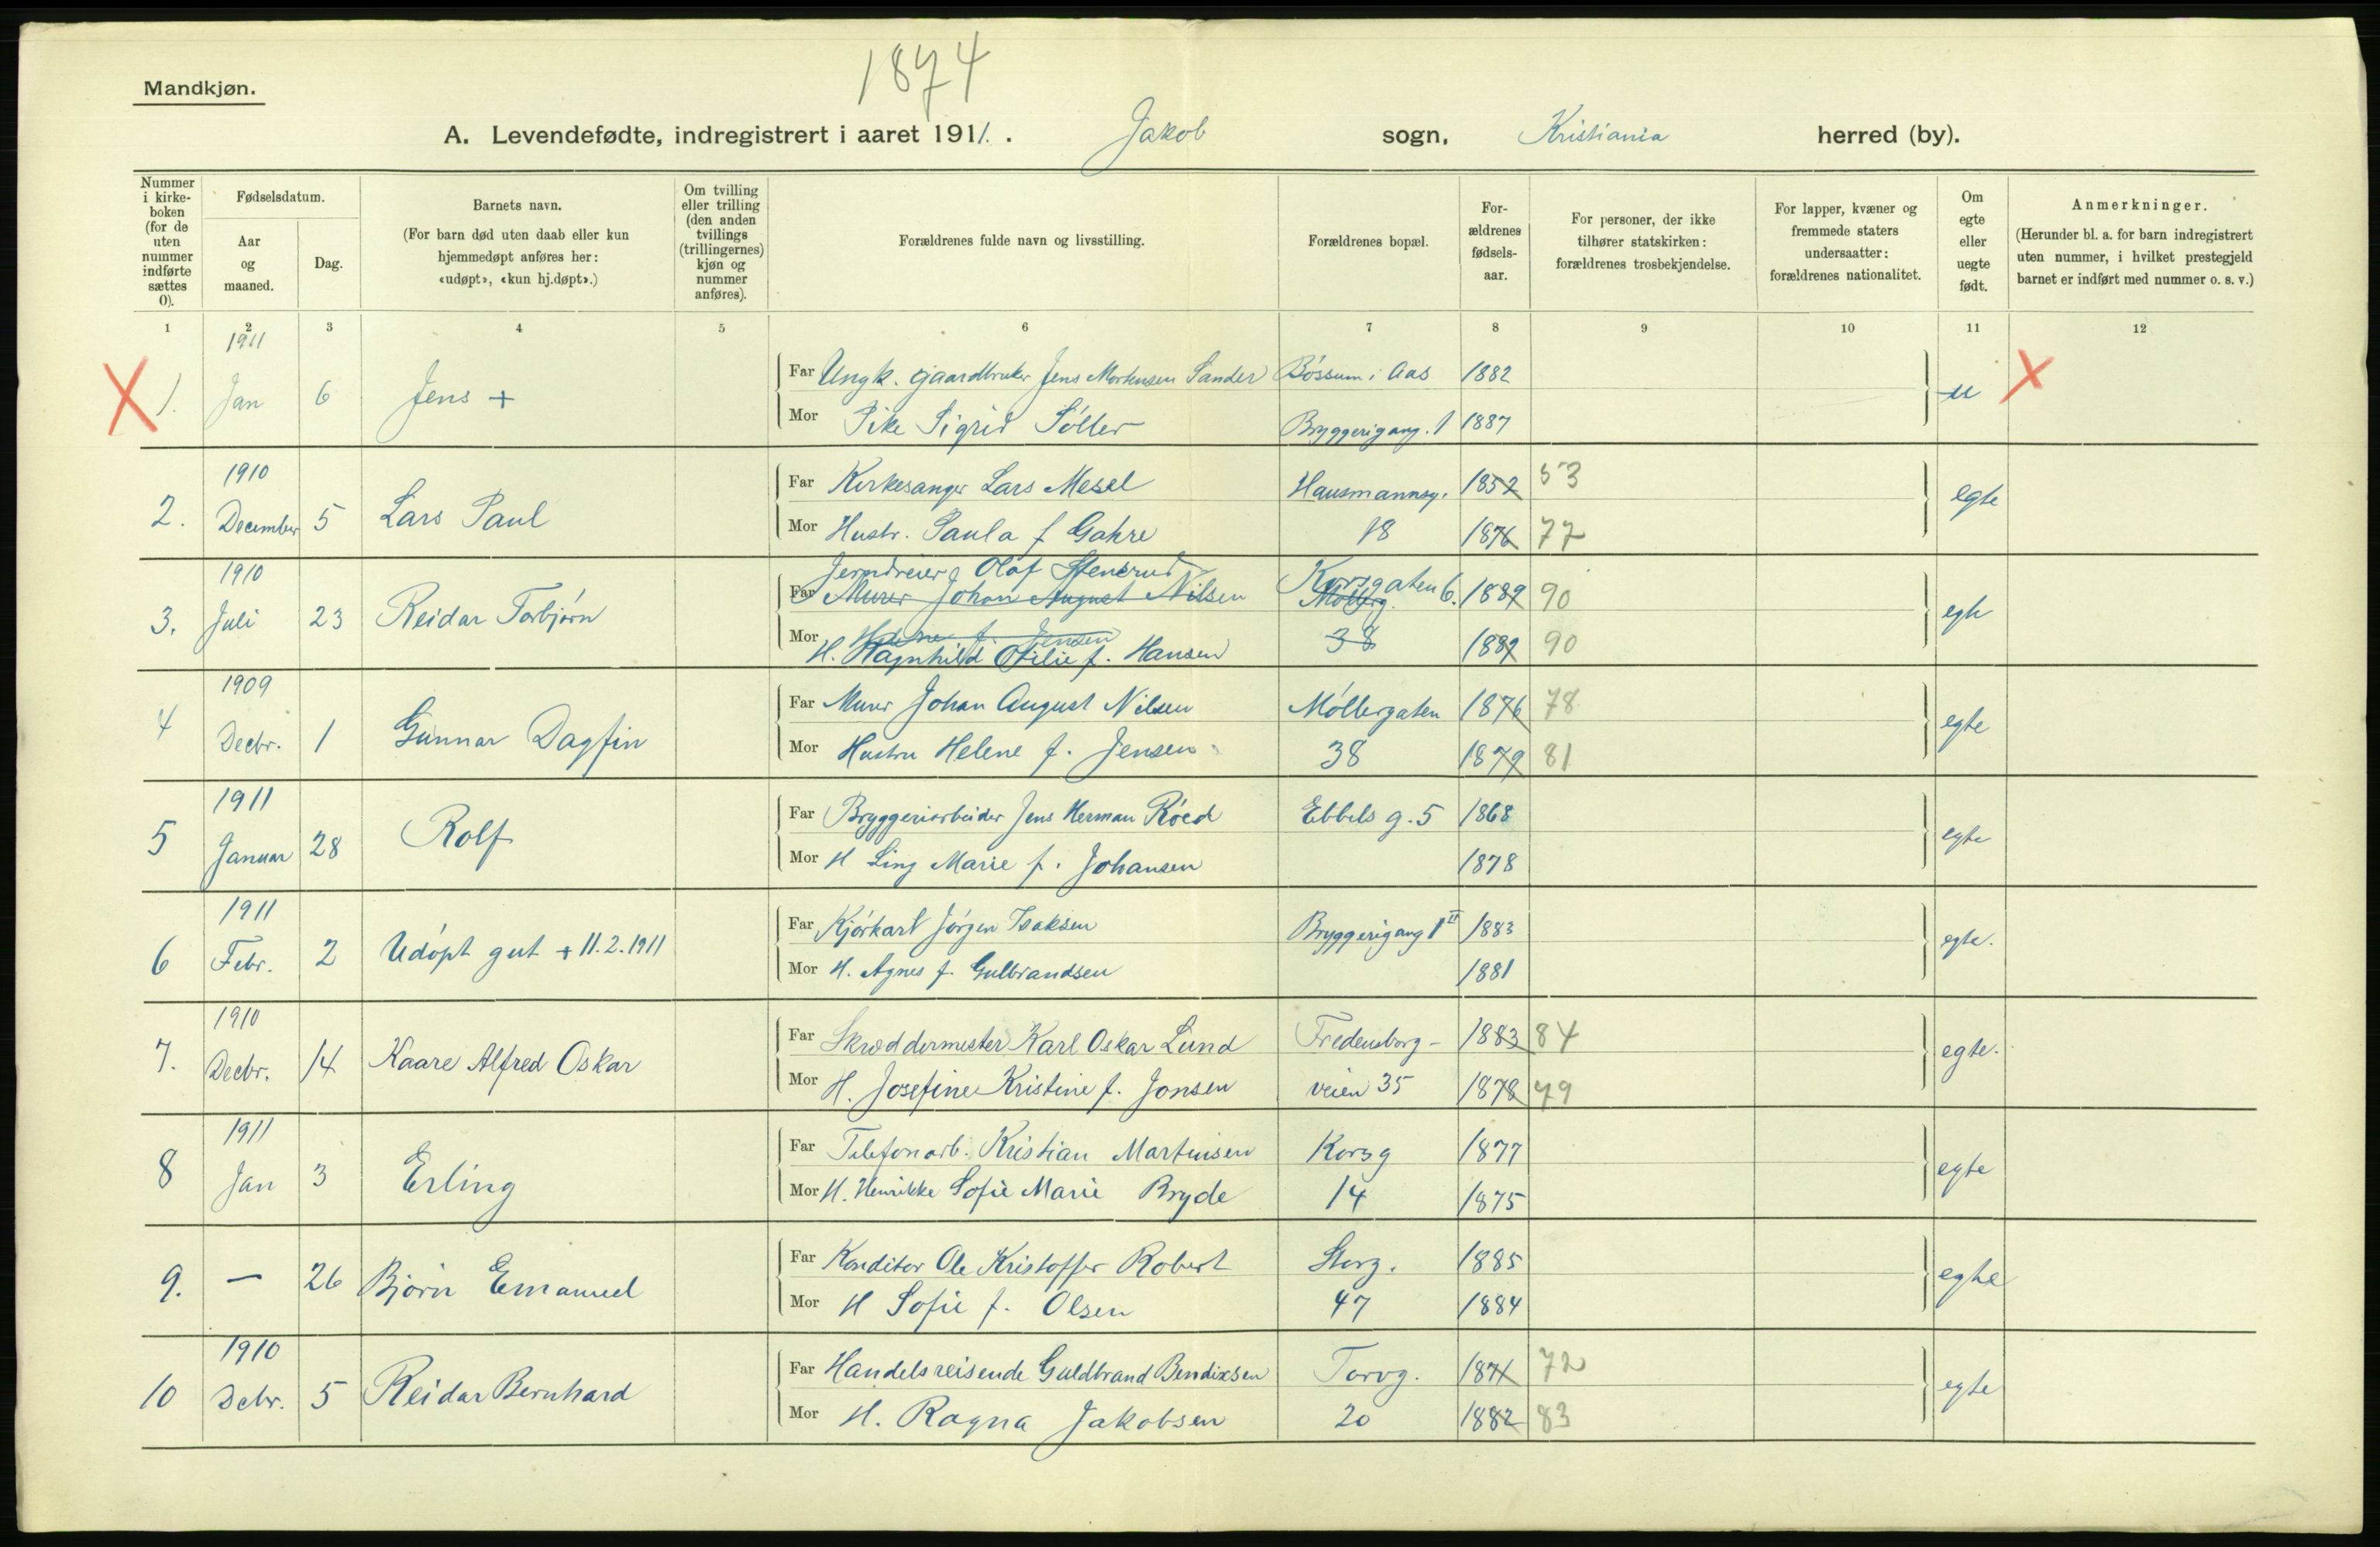 1874
Mandkjøn.
A. Levendefødte, indregistrert i aaret 1911. Jakob sogn, Kristiania herred (by).
Nummer i kirkeboken (for de uten nummer indførte sættes 0).
Fødselsdatum.
Aar og maaned.
Dag.
Barnets navn.
(For barn død uten daab eller kun hjemmedøpt anføres her: «udøpt», «kun hj.døpt».)
Om tvilling eller trilling (den anden tvillings (trillingernes) kjøn og nummer anføres).
Forældrenes fulde navn og livsstilling.
Forældrenes bopæl.
Forældrenes fødselsaar.
For personer, der ikke tilhører statskirken: forældrenes trosbekjendelse.
For lapper, kvæner og fremmede staters undersaatter: forældrenes nationalitet.
Om egte eller uegte født.
Anmerkninger.
(Herunder bl. a. for barn indregistrert uten nummer, i hvilket prestegjeld barnet er indført med nummer o. s. v.)
1 2 3 4 5 6 7 8 9 10 11 12
1911
X 1. Jan 6 Jens + Far Ungk. gaardbruker Jens Mortensen Sander Bóssum i Aas 1882 u X
Mor Pike Sigrid Sóller Bryggerigang. 1 1887
1910
2. December 5 Lars Paul Far Kirkesanger Lars Mesel Hausmannsg. 1852 53 egte
Mor Hustr. Paula f Gahre 18 1876 77
1910 Jerndreier Olaf Stensrud Korsgaten 6.
3. Juli 23 Reidar Torbjørn Far Murer Johan August Nilsen Mollerg. 1889 90 egte
Mor Helene f. Jensen 38 1889 90
H. Ragnhild Otilie f. Hansen
1909
4 Decbr. 1 Gunnar Dagfin Far Murer Johan August Nilsen Móllergaten 1876 78 egte
Mor Hustru Helene f. Jensen 38 1879 81
1911
5 Januar 28 Rolf Far Bryggeriarbeider Jens Herman Róed Ebbels g. 5 1868 egte
Mor H Liny Marie f. Johansen 1878
1911
6 Febr. 2 Udópt gut + 11.2.1911 Far Kjórkarl Jórgen Isaksen Bryggerigang 1 II 1883 egte.
Mor H. Agnes f. Gulbrandsen 1881
1910
7. Decbr. 14 Kaare Alfred Oskar Far Skræddermester Karl Oskar Lund Fredensborg- 1883 84 egte.
Mor H. Josefine Kristine f. Jonsen veien 35 1878 79
1911
8 Jan 3 Erling Far Telefonarb. Kristian Martinsen Korsg 1877 egte
Mor H. Henrikke Sofie Marie Bryde 14 1875
9. — 26 Bjórn Emanuel Far Konditor Ole Kristoffer Robert Storg. 1885 egte
Mor H Sofie f. Olsen 47 1884
1910
10 Debr. 5 Reidar Bernhard Far Handelsreisende Guldbrand Bendixsen Torvg. 1871 72 egte
Mor H. Ragna Jakobsen 20 1882 83